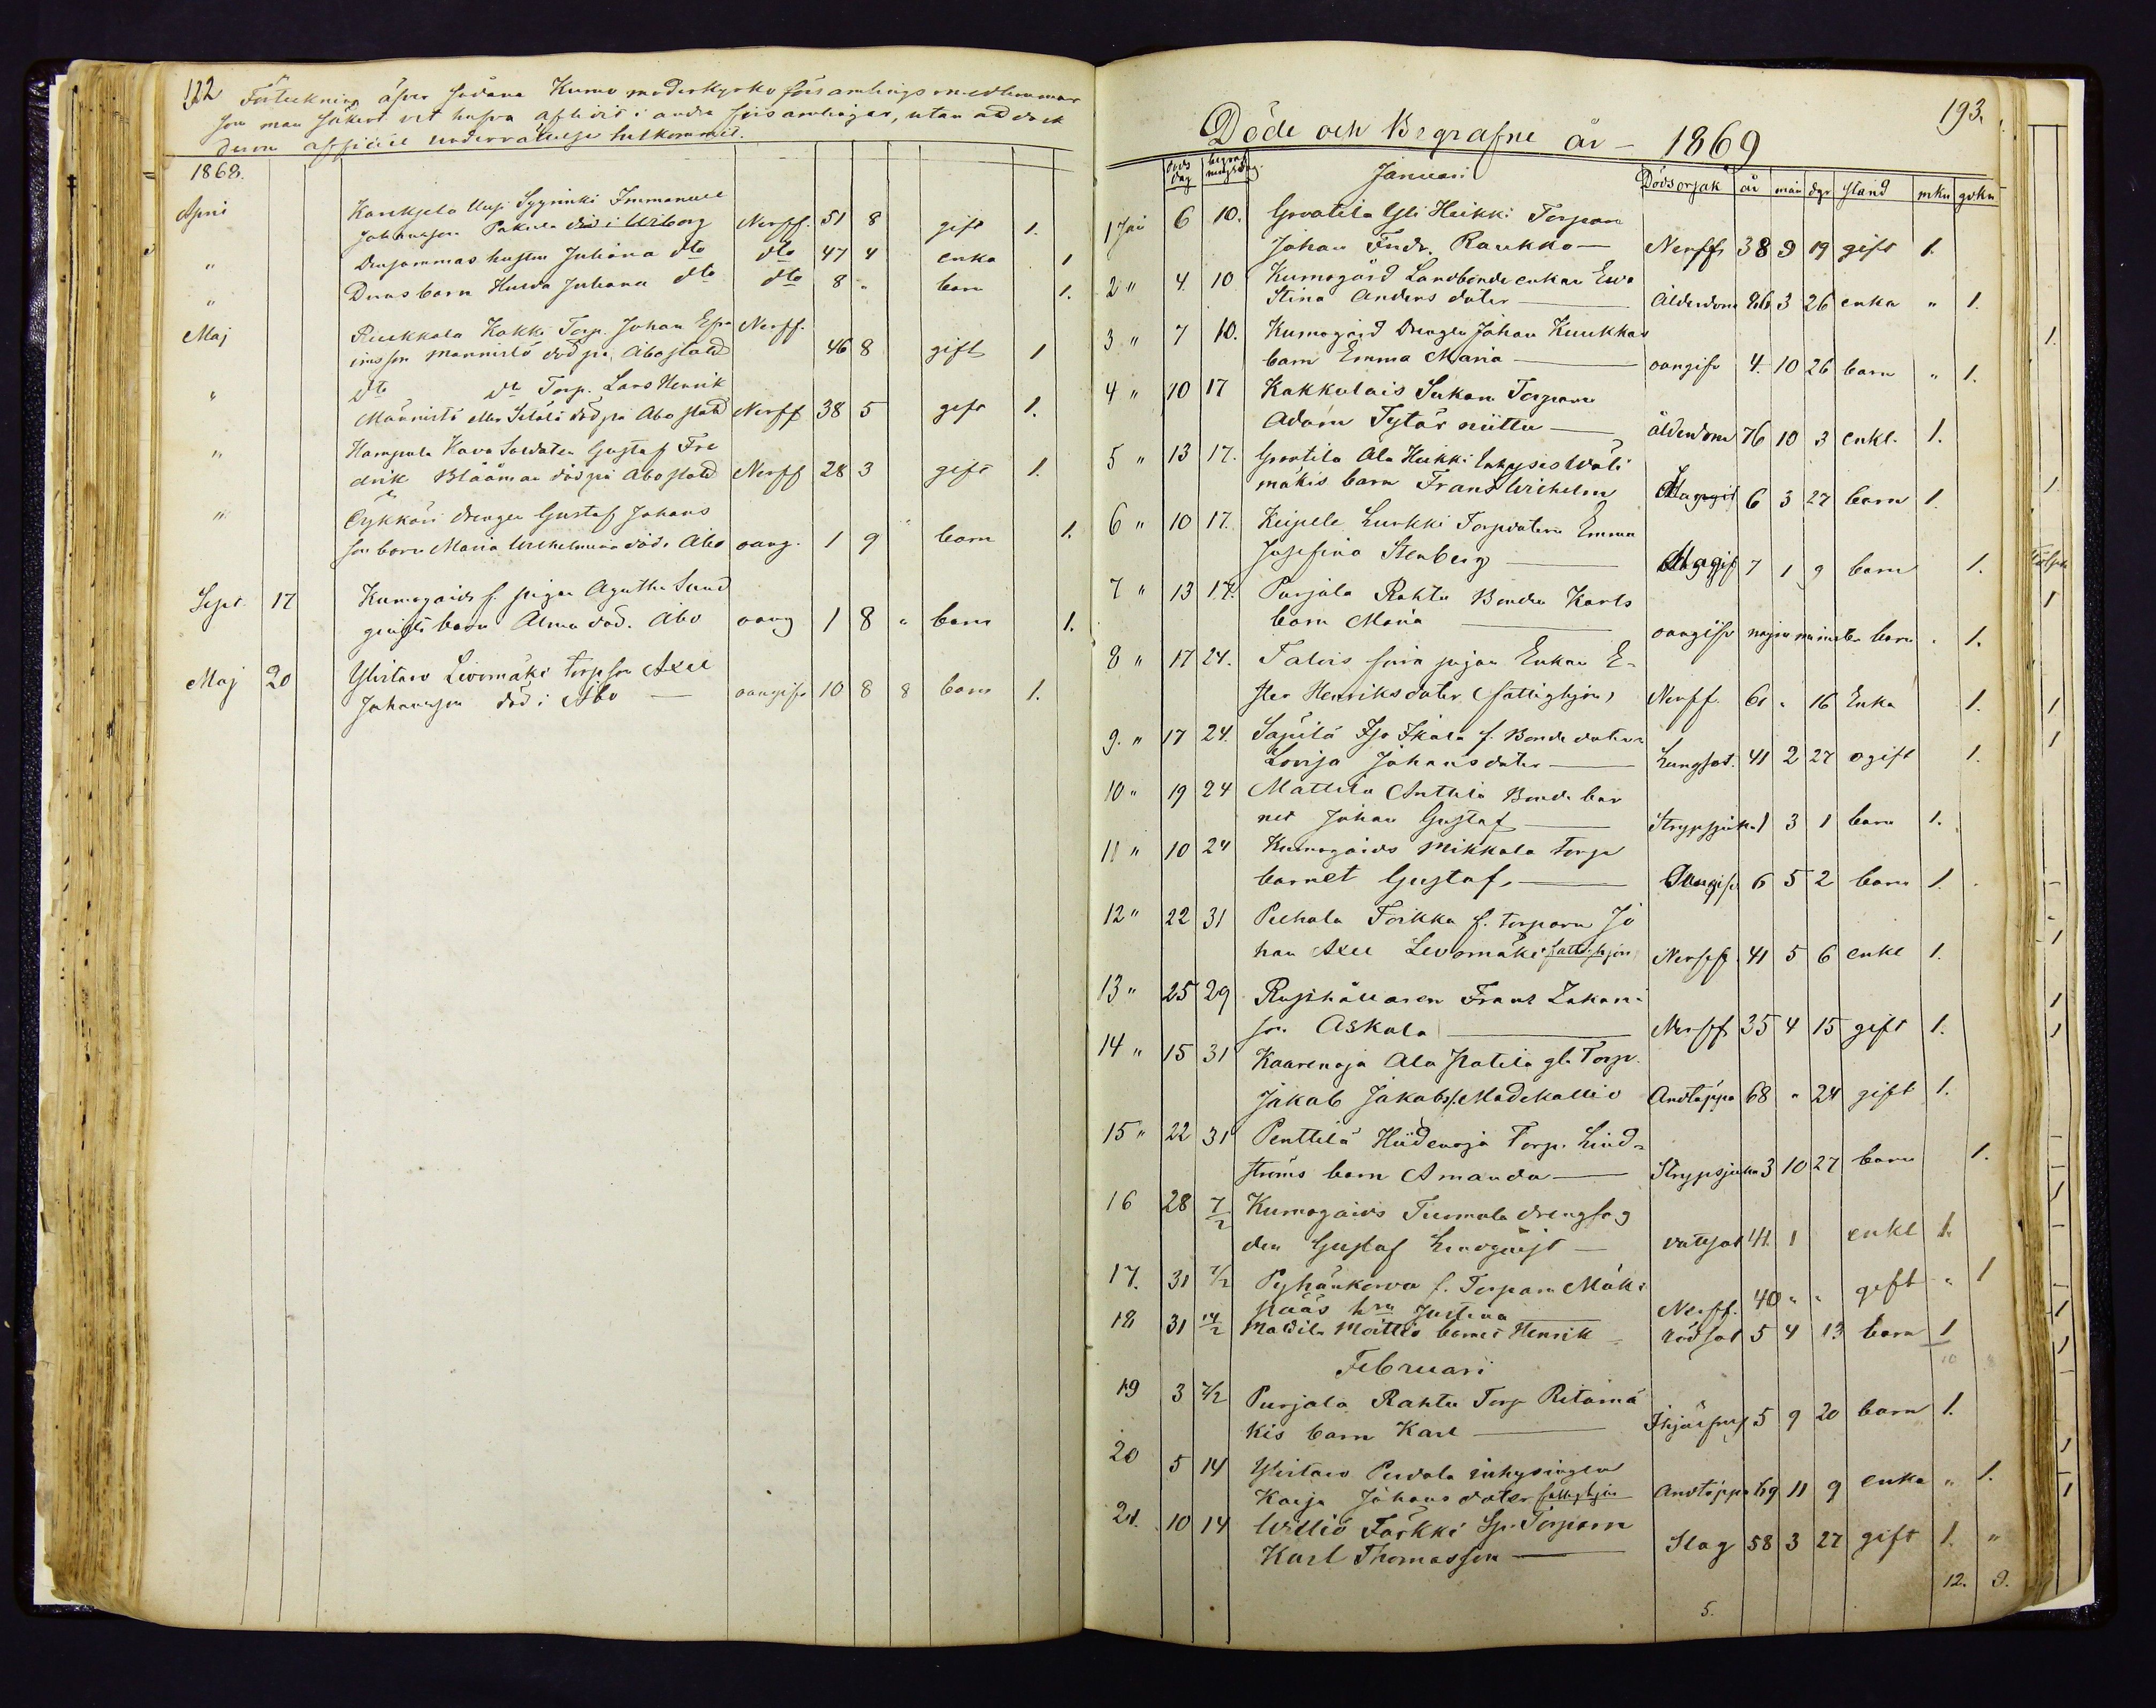 192 Förteckning öfver sådana Kumo moderkyrko församlings medlemmar
som man säkert vet hafva aflidit i andra församlingar, utan att dock
derom officiel underrättelse tillkommit.
1868.
April Karhejela Uusi Sygninki Immanuel
Johansson Pakula död i Wiborg Nerff. 51 8 gift 1.
" Densammas hustru Juliana dto dto 47 4 enka 1
" Deras barn Hulda Juliana dto dto 8 " barn 1.
Maj Ruukkala Kakki Torp. Johan Efra Nerff.
imsson Mannistö död på Åbo stad 46 8 gift 1
" dto dto Torp. Lars Henrik
Männistö eller död på Åbo stad Nerff 38 5 gift 1.
" Hampula Kava Soldaten Gustaf Fre
drik Blååman död på Åbo stad Nerff 28 3 gift 1.
" Öykkäri drengen Gustaf Johans
son barn Maria Wilhelmina död i Åbo oang. 1 9 barn 1.
Sept. 17 Kumogårds f. pigan Agatha Sund
qvists barn Alma död. Åbo oang 1 8 " barn 1.
Maj 20 Ylistaro Livomäki torp son Axel
Johansson död i Åbo — oangifv 10 8 8 barn 1.
193.
Döde och Begrafne år - 1869
döds dag begraf ningsdag. Januari Dödsorsak år mån dgr stånd mkn qvkn
1 Jan 6 10. Groatila Yli Heikki Torparn
Johan Fredr. Raukko — Nerff 38 9 19 gift 1.
2 " 4 10 Kumogård Landbonde enkan Eva
Stina Anders dotter — Ålderdom 86 3 26 enka " 1.
3 " 7 10. Kumogård Drengen Johan Kuukkas
barn Emma Maria — oangifv 4. 10 26 barn " 1.
4 " 10 17 Kakkulais Sukan Torparn
Adam Tytär niittu — ålderdom 76 10 3 enkl. 1.
5 " 13 17. Groatila Ala Heikki Inhyses Wäli
mäkis barn Frans Wilhelm 6 3 27 barn 1.
6 " 10 17. Keipele Lurkki Torpdotern Emma
Josefina Stenberg — 7 1 9 barn 1.
7 " 13 17. Purjala Rahtu Bonden Karls
barn Maria — oangifv några minuter barn . 1.
8 " 17 24. Talvis förra pigan Enkan E-
ster Henriksdoter (fattighjon) Nerff. 61 " 16 Enka 1.
9. " 17 24. Säpilä Iso Ikala f. Bonde doter
Lovisa Johansdoter — Lungsot. 41 2 27 ogift 1.
10 " 19 24 Mattila Anttila Bonde bar
net Johan Gustaf — Strypsjuka 1 3 1 barn 1.
11 " 10 24 Kumogårds Mikkola torp
barnet Gustaf. — Oangifv 6 5 2 barn 1.
12 " 22 31 Peehala Torkka f. torparn Jo
han Axel Levomäki fattighjon Nerff. 41 5 6 enkl 1.
13 " 25 29 Rusthållaren Frans Zakari
son Askola — Nerff 35 4 15 gift 1.
14 " 15 31 Kaarenoja Ala Pratila gla Torp.
Jakob Jakobs. Madekallio Andtäppa 68 " 24 gift 1.
15 " 22 31 Penttilä Hiidenoja Torp. Lind-
ströms barn Amanda — Strypsjuka 3 10 27 barn 1.
16 28 7/2 Kumogårds Tuomola drengfog
den Gustaf Lindqvist — vattsot 41. 1 enkl 1.
17. 31 7/2 Pyhänkorva f. Torparn Mäki
pääs hru Justina — Nerff. 40 " " gift " 1
18 31 14/2 Maldila Moittio barnet Henrik rödsot 5 4 13 barn 1
10 8
Februari
19 3 7/2 Purjala Rahtu Torp Ritämä
kis barn Karl — Ihjälfrus 5 9 20 barn 1.
20 5 14 Ylistaro Pervola inhysingen
Kaisa Johans doter fattighjon Andtäppa 69 11 9 enka " 1.
21. 10 14 Willio Torkki Sp. Torparn
Karl Thomasson — Slag 58 3 27 gift 1. "
12. 9.
5.